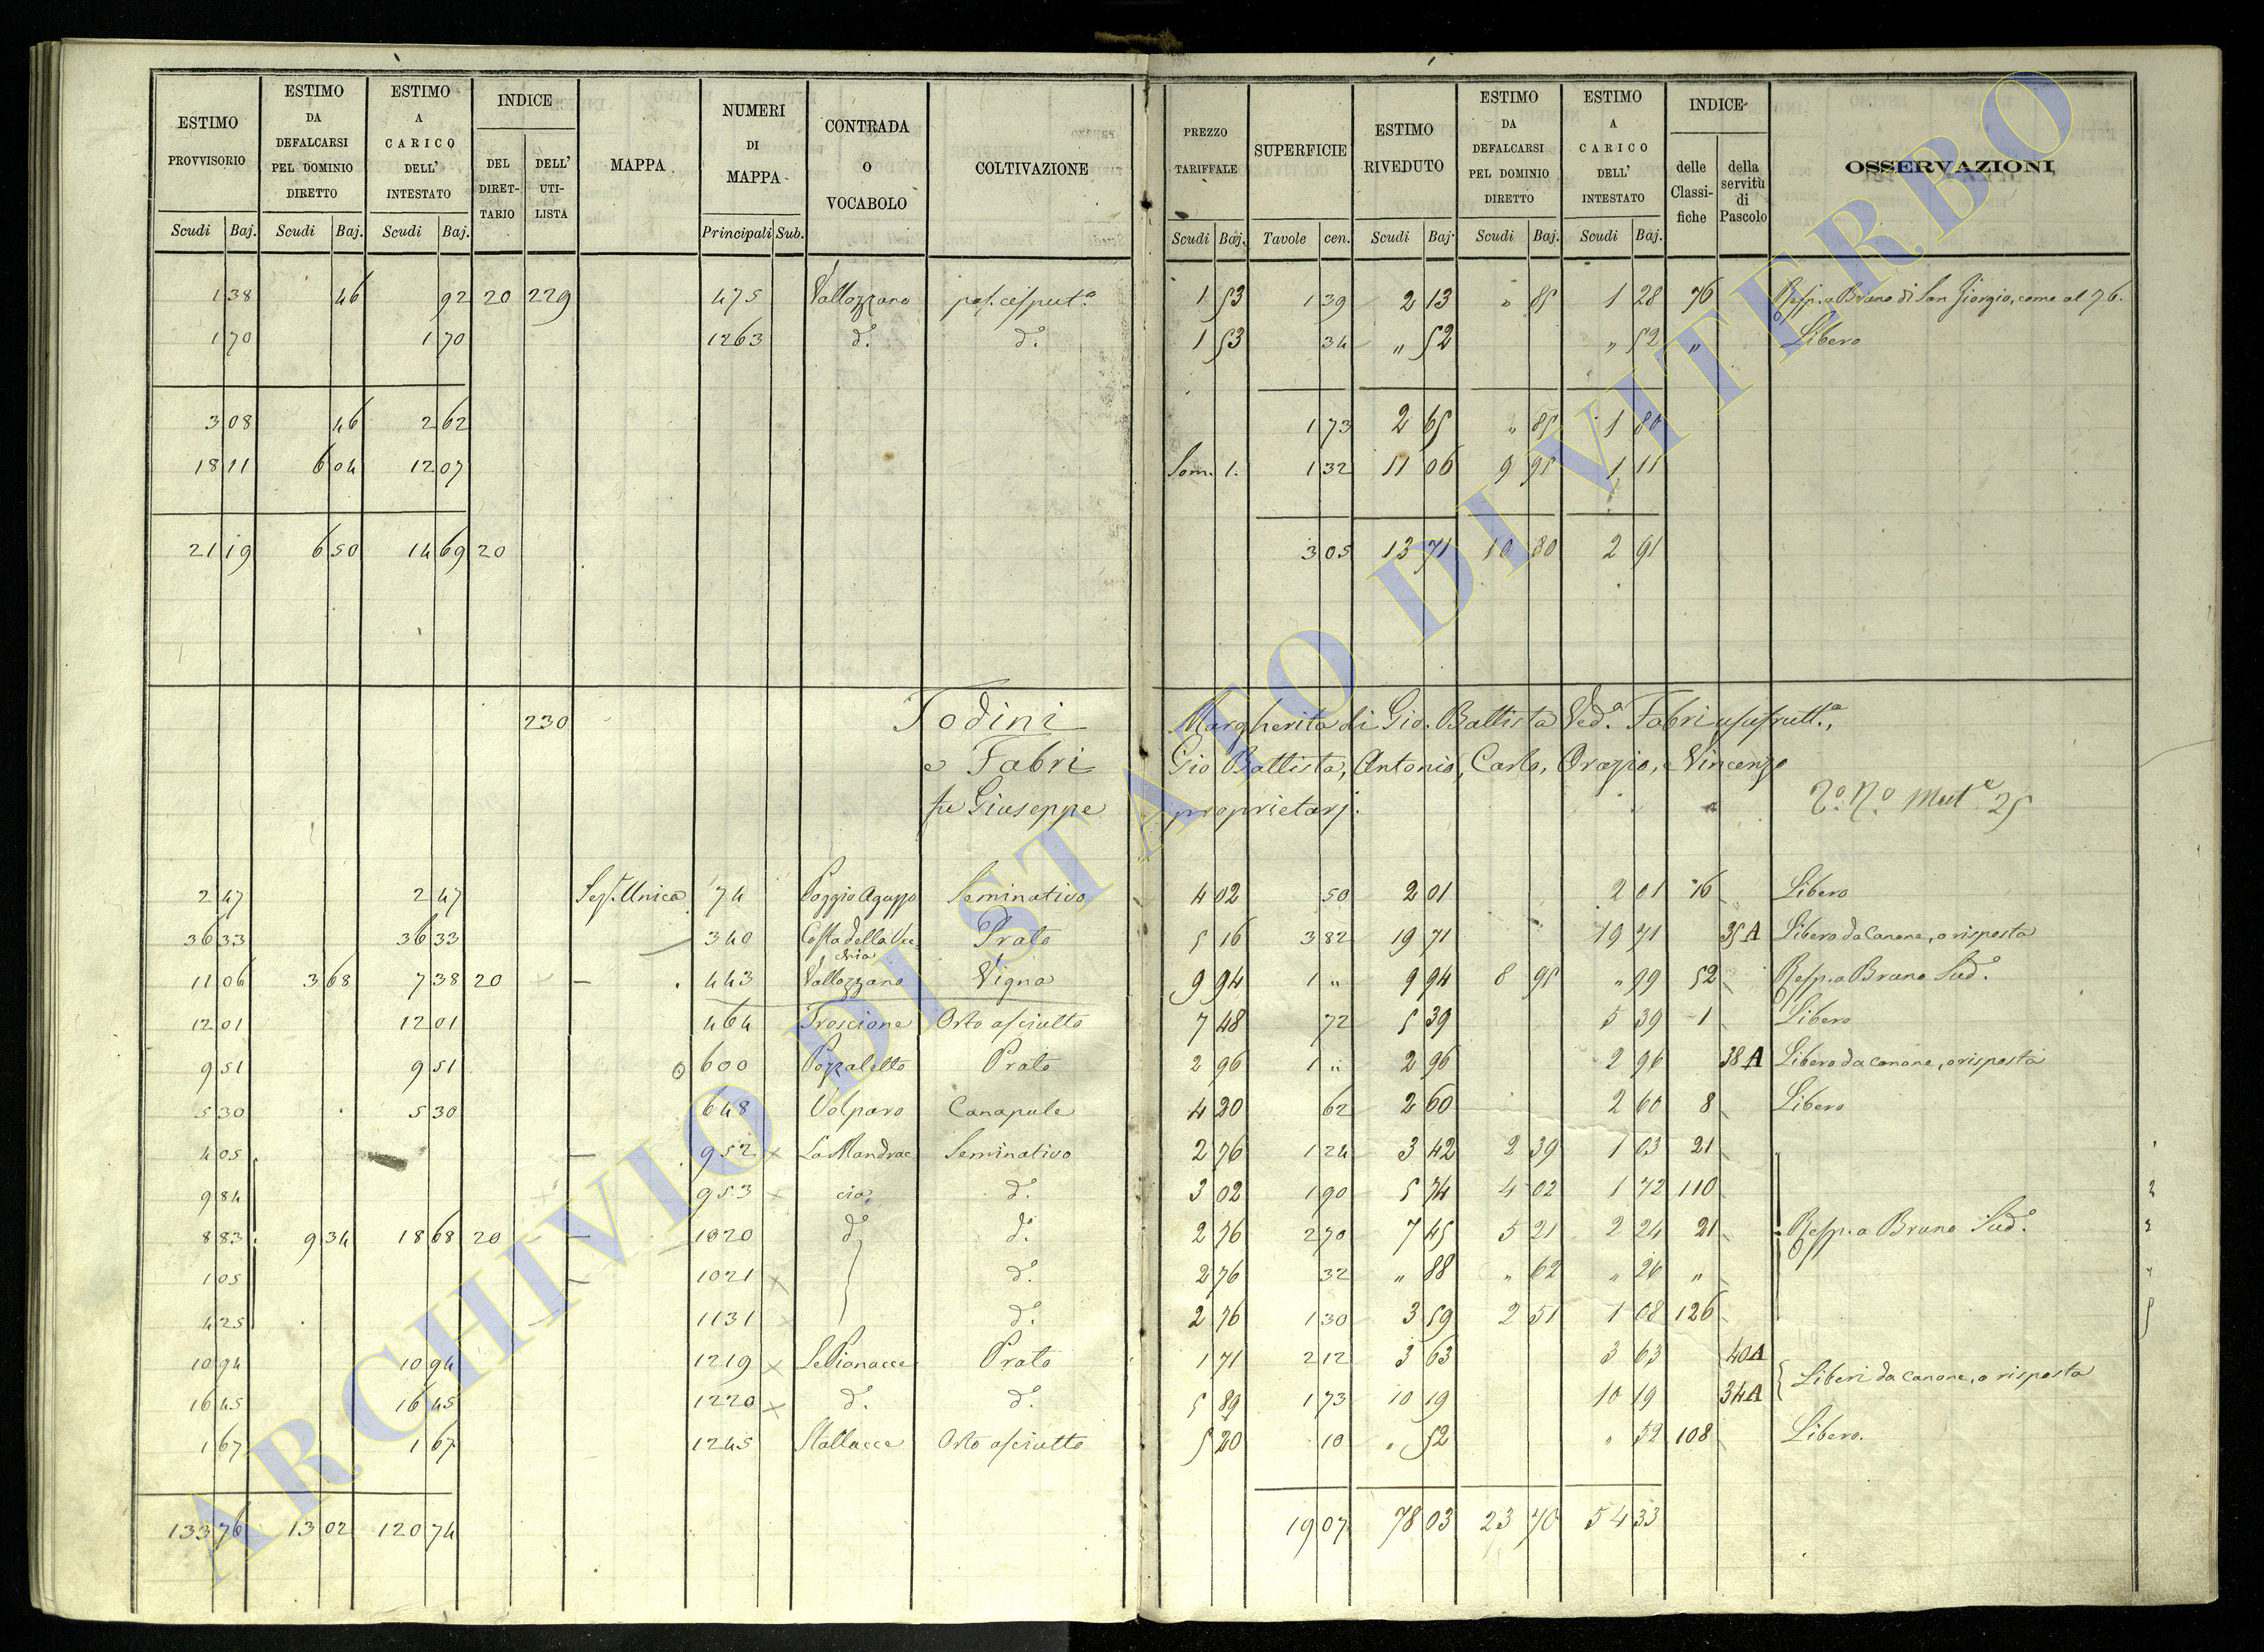 ESTIMO PROVVISORIO | ESTIMO DA DEFALCARSI PEL DOMINIO DIRETTO | ESTIMO A CARICO DELL' INTESTATO | INDICE DEL DIRETTARIO | DELL' UTILISTA | MAPPA | NUMERI DI MAPPA | CONTRADA O VOCABOLO | COLTIVAZIONE | PREZZO TARIFFALE | SUPERFICIE | ESTIMO RIVEDUTO | ESTIMO DA DEFALCARSI PEL DOMINIO DIRETTO | ESTIMO A CARICO DELL' INTESTATO | INDICE delle Classifiche | della servitù di Pascolo | OSSERVAZIONI
Scudi Baj. | Scudi Baj. | Scudi Baj. | Principali Sub. | Scudi Baj. | Tavole cen. | Scudi Baj. | Scudi Baj. | Scudi Baj.
1 38 | 46 | 92 | 20 | 229 | 475 | Vallozzano | pas. cesput.o | 1 53 | 1 39 | 2 13 | " 85 | 1 28 | 76 | Resp. a Bruno di San Giorgio, come al 76.
1 70 | 1 70 | 1263 | d.o | d.o | 1 53 | 34 | " 52 | " 52 | " | Libero
3 08 | 46 | 2 62 | 1 73 | 2 65 | " 85 | 1 80
18 11 | 6 04 | 12 07 | Som. 1. | 1 32 | 11 06 | 9 95 | 1 11
21 19 | 6 50 | 14 69 | 20 | 3 05 | 13 71 | 10 80 | 2 91
230 | Todini Margherita di Gio. Battista Ved.a Fabri usufrutt.a,
e Fabri Gio Battista, Antonio, Carlo, Orazio, e Vincenzo
fu Giuseppe proprietarj.
Mut.e 25
2 47 | 2 47 | Sez. Unica | 74 | Poggio Aguzzo | Seminativo | 4 02 | 50 | 2 01 | 2 01 | 16 | Libero
36 33 | 36 33 | 340 | Costa della Vecchia | Prato | 5 16 | 3 82 | 19 71 | 19 71 | 35 A | Libero da Canone, o risposta
11 06 | 3 68 | 7 38 | 20 | 443 | Vallozzano | Vigna | 9 94 | 1 " | 9 94 | 8 95 | " 99 | 52 | Resp. a Bruno Sud.o
12 01 | 12 01 | 464 | Troscione | Orto asciutto | 7 48 | 72 | 5 39 | 5 39 | 1 | Libero
9 51 | 9 51 | 600 | Pozzaletto | Prato | 2 96 | 1 " | 2 96 | 2 96 | 38 A | Libero da canone, o risposta
5 30 | 5 30 | 648 | Volparo | Canapule | 4 20 | 62 | 2 60 | 2 60 | 8 | Libero
4 05 | 952 | La Mandrac | Seminativo | 2 76 | 1 24 | 3 42 | 2 39 | 1 03 | 21
9 84 | 953 | cia | d.o | 3 02 | 1 90 | 5 74 | 4 02 | 1 72 | 110
8 83 | 9 34 | 18 68 | 20 | 1020 | d.o | d.o | 2 76 | 2 70 | 7 45 | 5 21 | 2 24 | 21 | Resp. a Bruno Sud.o
1 05 | 1021 | d.o | 2 76 | 32 | " 88 | " 62 | " 26 | "
4 25 | 1131 | d.o | 2 76 | 1 30 | 3 59 | 2 51 | 1 08 | 126
10 94 | 10 94 | 1219 | Le Pianacce | Prato | 1 71 | 2 12 | 3 63 | 3 63 | 40 A | Liberi da canone, o risposta
16 45 | 16 45 | 1220 | d.o | d.o | 5 89 | 1 73 | 10 19 | 10 19 | 34 A
1 67 | 1 67 | 1245 | Stallacce | Orto asciutto | 5 20 | 10 | " 52 | " 52 | 108 | Libero.
133 76 | 13 02 | 120 74 | 19 07 | 78 03 | 23 70 | 54 33
ARCHIVIO DI STATO DI VITERBO